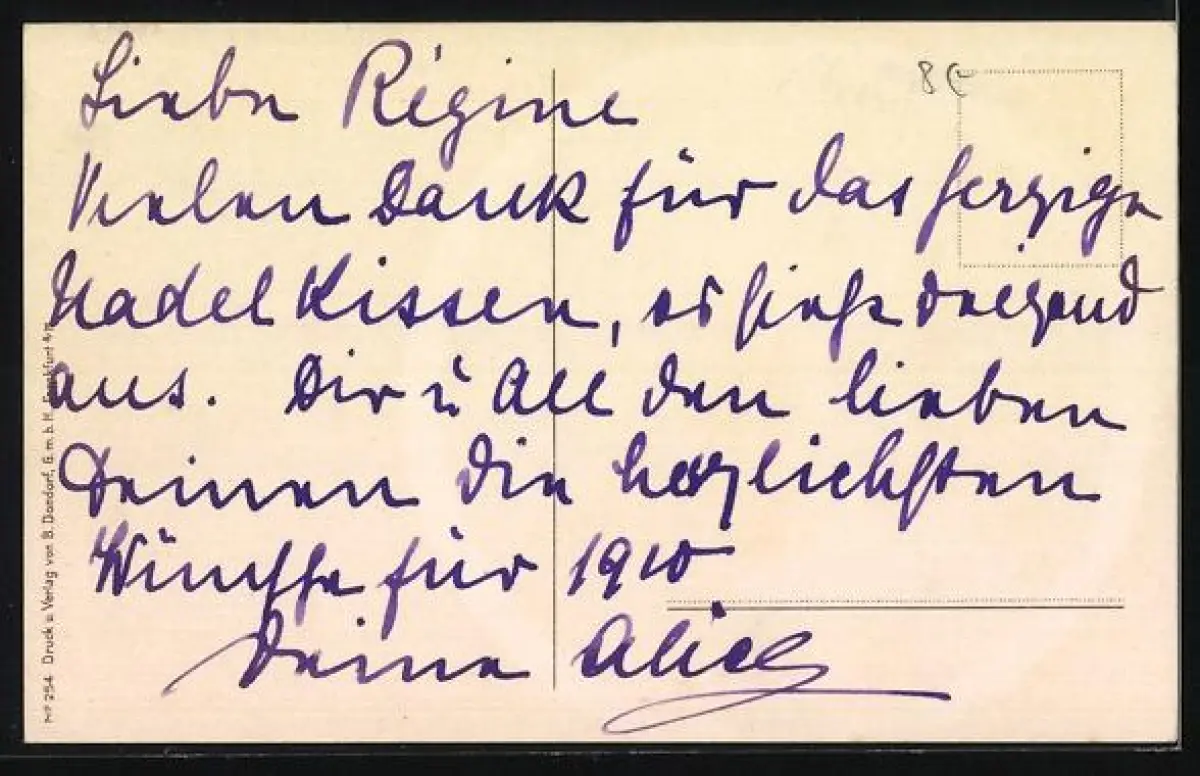 Liebe Régine
Vielen Dank für das herzige
Nadelkissen, es sieht reizend
aus. Dir u All den lieben
Deinen die herzlichsten
Wünsche für 1910
Deine Alice
8€
Nº 254 Druck u. Verlag von B. Dondorf, G. m. b. H. Frankfurt a/M